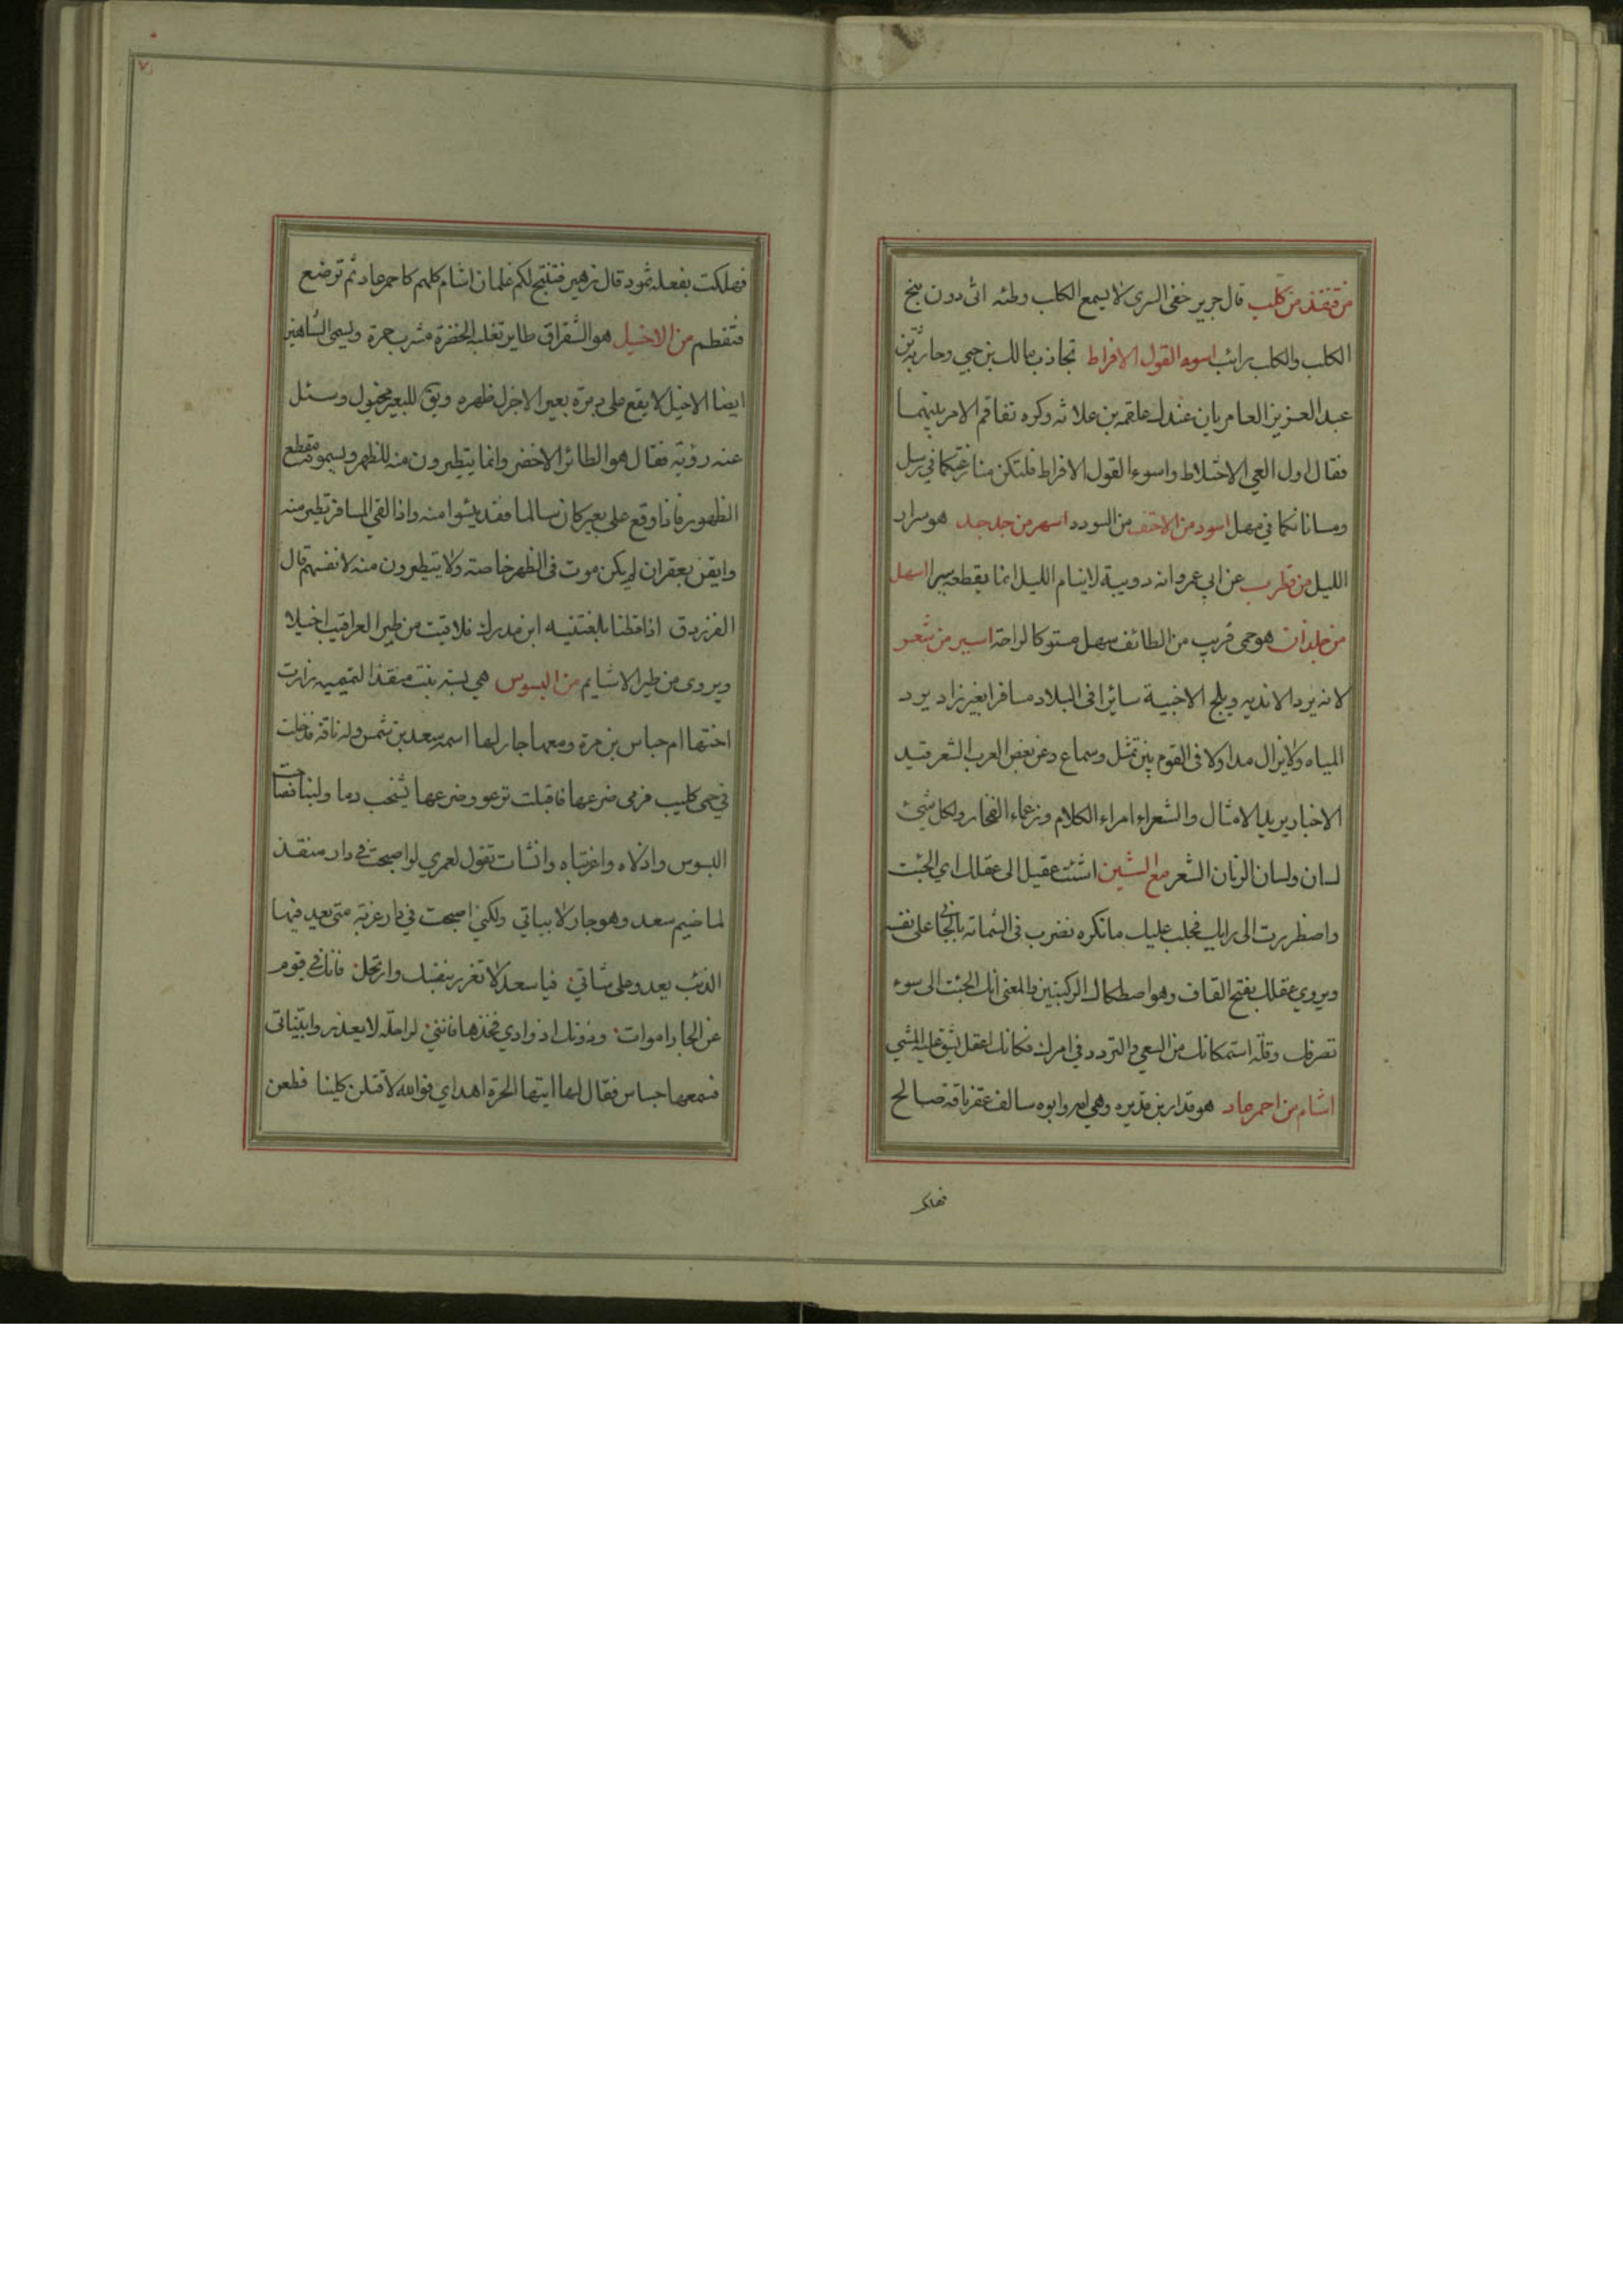 من قنفذ من كلب قال جرير خفى السرى لا يسمع الكلب وطئه اتى دون نبح
الكلب والكلب رائب اسوء القول الافراط تجاذب مالك بن حبي وحارثة بن
عبد العزيز العامريان عند علقمة بن علاثة وكره تفاقم الامر بينهما
فقال اول العي الاختلاط واسوء القول الافراط فلتكن منازعتكما في رسل
ومساناتكما في مهل اسود من الاحنف من السودد اسهر من جدجد هو صرار
الليل من قطرب عن ابي عمرو انه دويبة لا ينام الليل انما يقطعه سيرا اسهل
من جلذان هو حمى قريب من الطائف سهل مستو كالراحة اسير من شعر
لانه يرد الاندية ويلج الاخبية سائرا فى البلاد مسافرا بغير زاد يرد
المياه ولا يزال مداولا فى القوم بين تمثل وسماع وعن بعض العرب الشعر قيد
الاخبار بريد الامثال والشعراء امراء الكلام وزعماء الفخار ولكل شيئ
لسان ولسان الزمان الشعر مع الشين اشئت عقيل الى عقلك اي الجئت
واضطررت الى رايك فجلب عليك ما تكره تضرب فى الشماتة بالجاني على نفسه
ويروي عقلك بفتح القاف وهو اصطكاك الركبتين والمعنى انك الجئت الى سوء
تصرفك وقلة استمكانك من السعي والتردد في امرك فكانك اعقل يشق عليه المشي
اشام من احمر عاد هو قدار بن قديره وهي امه وابوه سالف عقر ناقة صالح
فهلكت
٧
فهلكت بفعله ثمود قال زهير فتنتج لكم غلمان اشام كلهم كاحمر عاد ثم ترضع
فتفطم من الاخيل هو الشقراق طاير تغلبه الخضرة مشرب حمرة ويسمى الشاهين
ايضا الاخيل لا يقع على دبرة بعير الا خزل ظهره ويق للبعير مخيول وسئل
عنه رؤبة فقال هو الطائر الاخضر وانما يتطيرون منه للظهر ويسمونه مقطع
الظهور فاذا وقع على بعير كان سالما فقد يئسوا منه واذا لقي المسافر تطير منه
وايقن بعقر ان لم يكن موت فى الظهر خاصة ولا يتطيرون منه لانفسهم قال
الفرزدق اذا قطنا بلغتنيه ابن مدرك فلاقيت من طير العراقيب اخيلا
ويروى من طير الاشايم من البسوس هي بسة بنت منقذ التميمية زارت
اختها ام جساس بن مرة ومعها جار لها اسمه سعد بن شمس وله ناقة فدخلت
في حمى كليب فرمى ضرعها فاقبلت ترغو وضرعها يشخب دما ولبنا فصاحت
البسوس واذلاه واغربتاه وانشات تقول لعمري لو اصبحت في دار منقذ
لما ضيم سعد وهو جار لابياتي ولكني اصبحت في دار غربة متى يعد فيها
الذئب يعدو على شاتي فيا سعد لا تغرر بنفسك وارتحل فانك في قوم
عن الجار اموات ودونك اذوادي فخذها فانني لراحلة لا يعذروا بنياتى
فسمعها جساس فقال لها ايتها الحرة اهداي فوالله لاقتلن كليبا فطعن